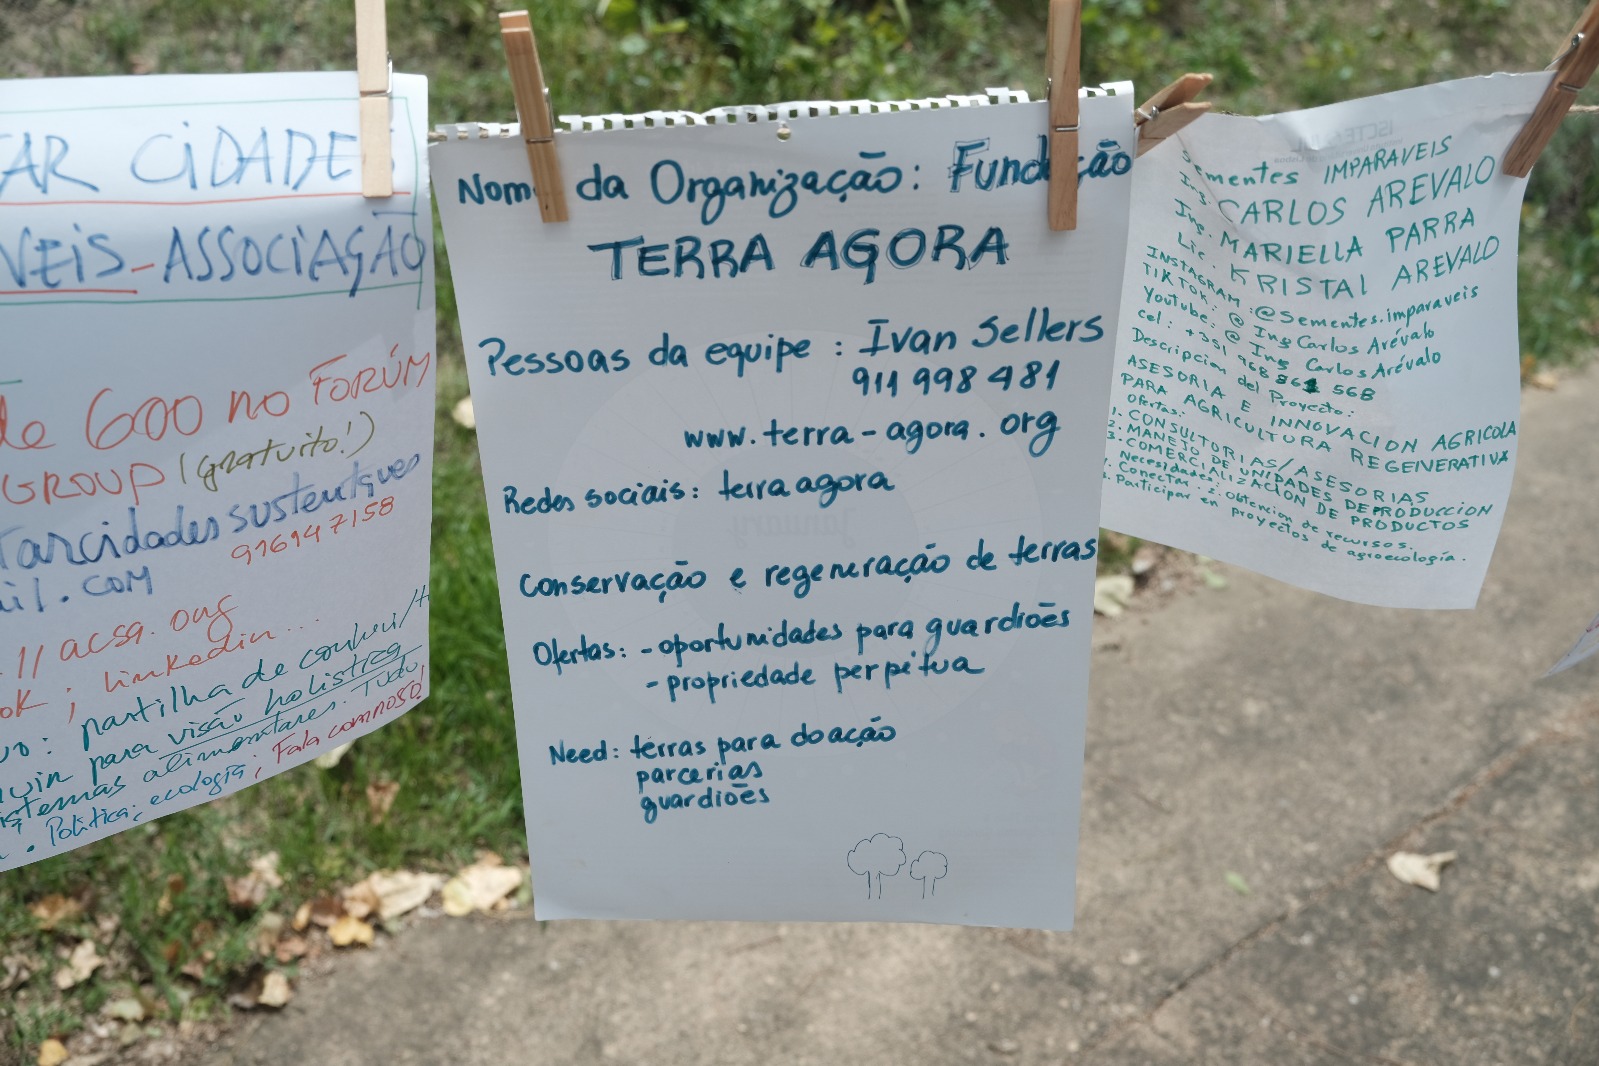 TAR CIDADES
VEIS - ASSOCIAÇÃO
de 600 no FORÚM
GROUP (gratuito!)
tarcidades sustentaveis
916147158
ail.com
// acsa.org
ok, linkedin...
partilha de
para visão holistica
sistemas alimentares. Tudo,
. Política; ecologia; Fala connosco!
Nome da Organização: Fundação
TERRA AGORA
Pessoas da equipe : Ivan Sellers
911 998 481
www.terra-agora.org
Redes sociais: terra agora
Conservação e regeneração de terras
Ofertas: - oportunidades para guardiões
- propriedade perpétua
Need: terras para doação
parcerias
guardiões
Sementes IMPARAVEIS
Ing. CARLOS AREVALO
Ing. MARIELLA PARRA
Lic. KRISTAL AREVALO
INSTAGRAM: @Sementes.imparaveis
TIKTOK: @ Ing Carlos Arévalo
Youtube: @ Ing Carlos Arévalo
cel: +351 968 861 568
Descripcion del Proyecto:
ASESORIA E INNOVACION AGRICOLA
PARA AGRICULTURA REGENERATIVA
Ofertas:
1. CONSULTORIAS/ASESORIAS
2. MANEJO DE UNIDADES DE PRODUCCION
3. COMERCIALIZACION DE PRODUCTOS
Necesidades:
1. Conectar. 2. Obtencion de recursos.
3. Participar en proyectos de agroecología.